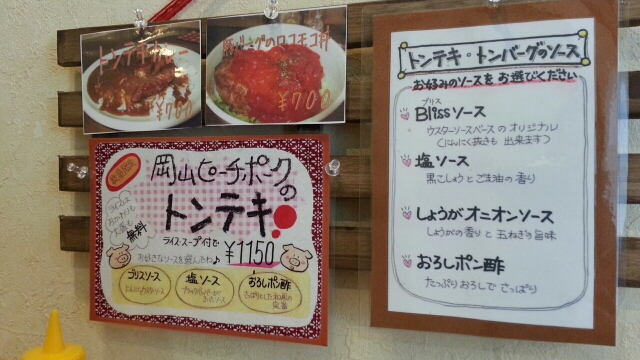 ¥700
¥700
岡山ピーチポークの
トンテキ
無料
ライス・スープ付で
¥1150
お好きなソースを選んでね♪
ブリスソース
塩ソース
おろしポン酢
トンテキ・トンバーグのソース
お好みのソースをお選びください
ブリス
Blissソース
ウスターソースベースのオリジナル
(にんにく抜きも出来ます)
塩ソース
黒こしょうとごま油の香り
しょうがオニオンソース
しょうがの香りと玉ねぎの旨味
おろしポン酢
たっぷりおろしでさっぱり